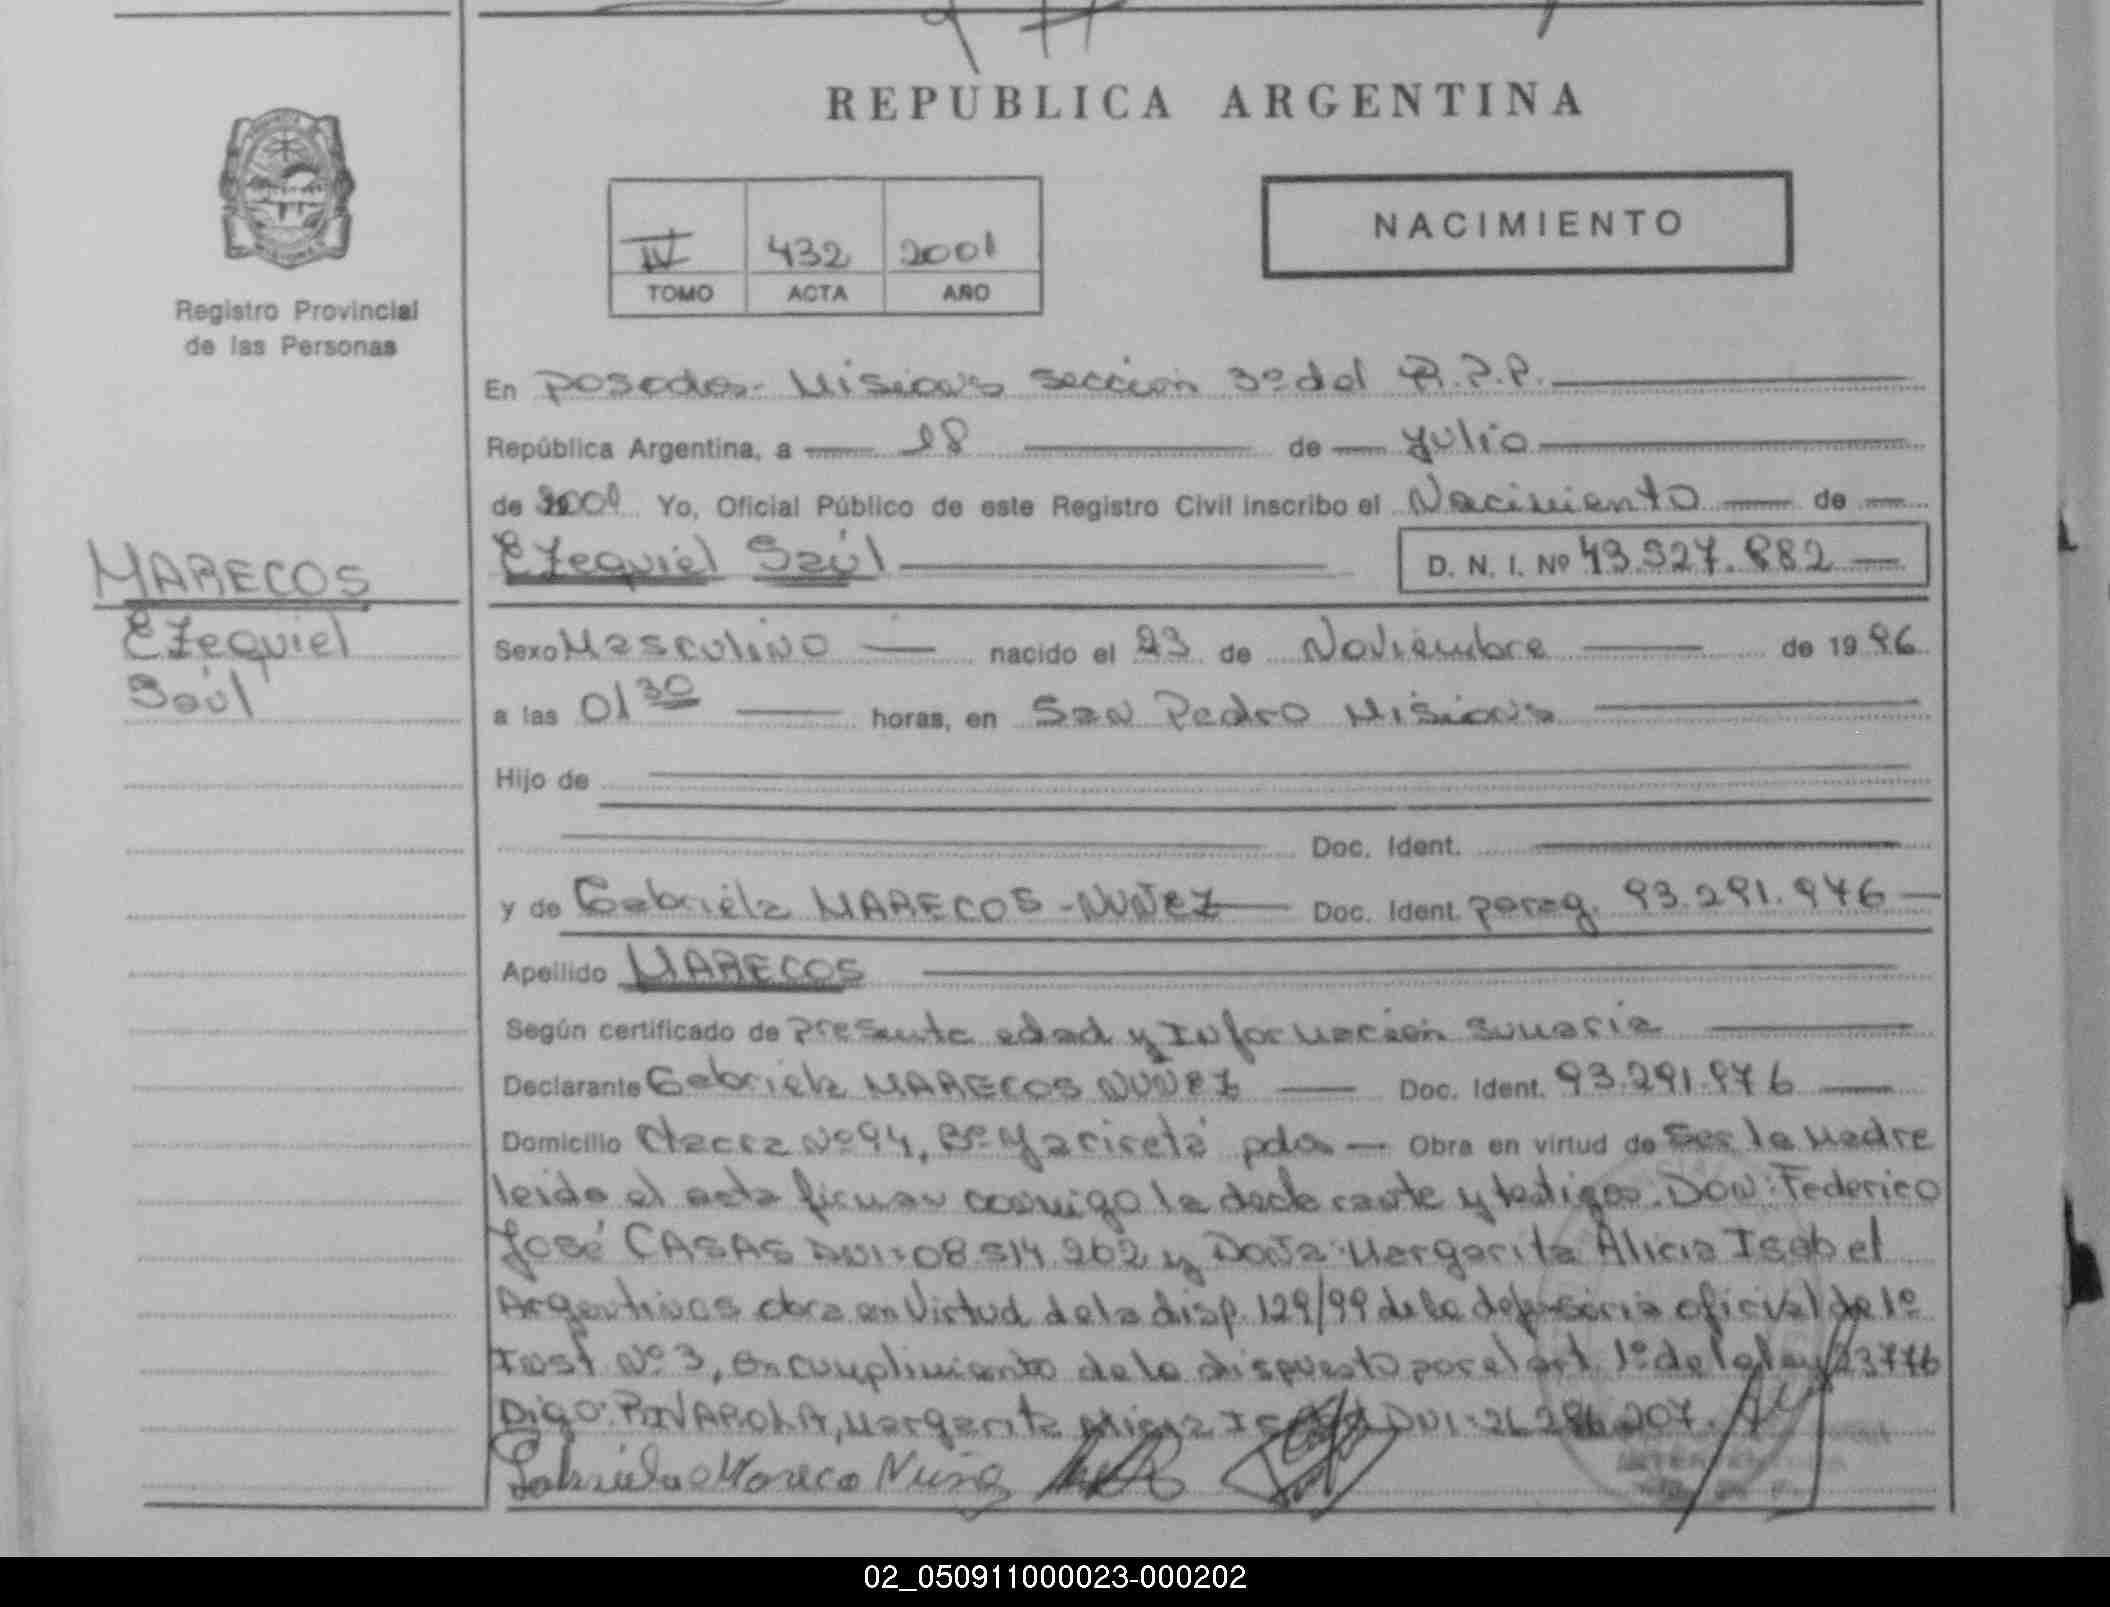 REPUBLICA ARGENTINA
NACIMIENTO
IV 432 2001
TOMO ACTA AÑO
Registro Provincial
de las Personas
En Posadas- Misiones sección 3º del R.P.P.
República Argentina, a 18 de Julio
de 2001 Yo, Oficial Público de este Registro Civil inscribo el Nacimiento de
Ezequiel Saúl D. N. I. Nº 43.527.882
MARECOS
Ezequiel
Saúl
Sexo Masculino nacido el 23 de Noviembre de 1996
a las 01 30 horas, en San Pedro Misiones
Hijo de
Doc. Ident.
y de Gabriela MARECOS-NUÑEZ Doc. Ident. parag. 93.291.976
Apellido MARECOS
Según certificado de Presunta edad y Información Sumaria
Declarante Gabriela MARECOS NUÑEZ Doc. Ident. 93.291.976
Domicilio Chacra Nº 94, Bº Yaciretá pdas Obra en virtud de Ser la Madre
leída el acta firman conmigo la declarante y testigos: Don: Federico
José CASAS DNI: 08.514.262 y Doña: Margarita Alicia Isabel
Argentinos obra en Virtud de la disp. 129/99 de la defensoría oficial de 1º
Inst Nº 3, en cumplimiento de lo dispuesto por el art. 1º de la ley 23776
Digo: PINAROLA, Margarita Alicia DNI: 207.
Gabriela Mareco Nuñez
02_050911000023-000202